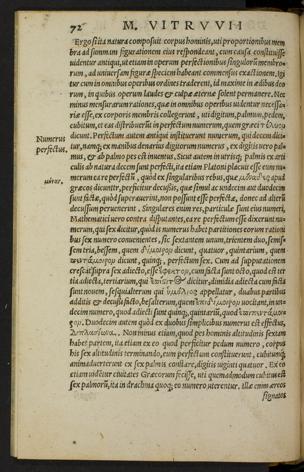 72 M. VITRVVII
Ergo si ita natura composuit corpus hominis, uti proportionibus mem
bra ad summam figurationem eius respondeant, cum causa constituisse
uidentur antiqui, ut etiam in operum perfectionibus singulorum membro-
rum, ad uniuersam figuræ speciem habeant commensus exactionem. Igi
tur cum in omnibus operibus ordines traderent, id maxime in ædibus deo
rum, in quibus operum laudes & culpæ æternæ solent permanere. Nec
minus mensurarum rationes, quæ in omnibus operibus uidentur necessa-
riæ esse, ex corporis membris collegerunt, uti digitum, palmum, pedem,
cubitum, & eas distribuerunt in perfectum numerum, quem græci
dicunt. Perfectum autem antiqui instituerunt numerum, qui decem dici-
Numerus
perfectus.
tur, namque ex manibus denarius digitorum numerus, ex digitis uero pal-
mus, & ab palmo pes est inuentus. Sicut autem in utrisque palmis ex arti
culis ab natura decem sunt perfecti, ita etiam Platoni placuit esse eum nu-
merum ea re perfectum, quod ex singularibus rebus, quæ μονάδες apud
græcos dicuntur, perficitur decussis, quæ simul ac undecim aut duodecim
sunt factæ, quod superauerint, non possunt esse perfectæ, donec ad alterum
decussim perueniant. Singulares enim res, particulæ sunt eius numeri.
Mathematici uero contra disputantes, ea re perfectum esse dixerunt nu-
merum, qui sex dicitur, quod is numerus habet partitiones eorum rationi
bus sex numero conuenientes, sic sextantem unum, trientem duo, semis-
sem tria, bessem, quem δίμοιρον dicunt, quatuor, quintarium, quem
πεντάμοιρον dicunt, quinque, perfectum sex. Cum ad supputationem
crescat supra sex adiecto, asse ἔφεκτον, cum facta sunt octo, quod est ter
tia adiecta, tertiarium, qui dicitur, dimidia adiecta cum facta
sunt nouem, sesquialterum qui ἡμιόλιος appellatur, duabus partibus
additis & decussi facto, bes alterum, quem uocitant, in un-
decim numero, quod adiecti sunt quinque, quintarium, quod
Duodecim autem quod ex duobus simplicibus numeris est effectus,
διπλασίωνα. Non minus etiam, quod pes hominis altitudinis sextam
habet partem, ita etiam ex eo quod perficitur pedum numero, corpus
his sex altitudinis terminando, eum perfectum constituerunt, cubitumque
animaduerterunt ex sex palmis constare, digitis uiginti quatuor. Ex eo
etiam uidentur ciuitates Græcorum fecisse, uti quemadmodum cubitus est
sex palmorum, ita in drachma quoque eo numero uterentur. Illæ enim æreos
signatos